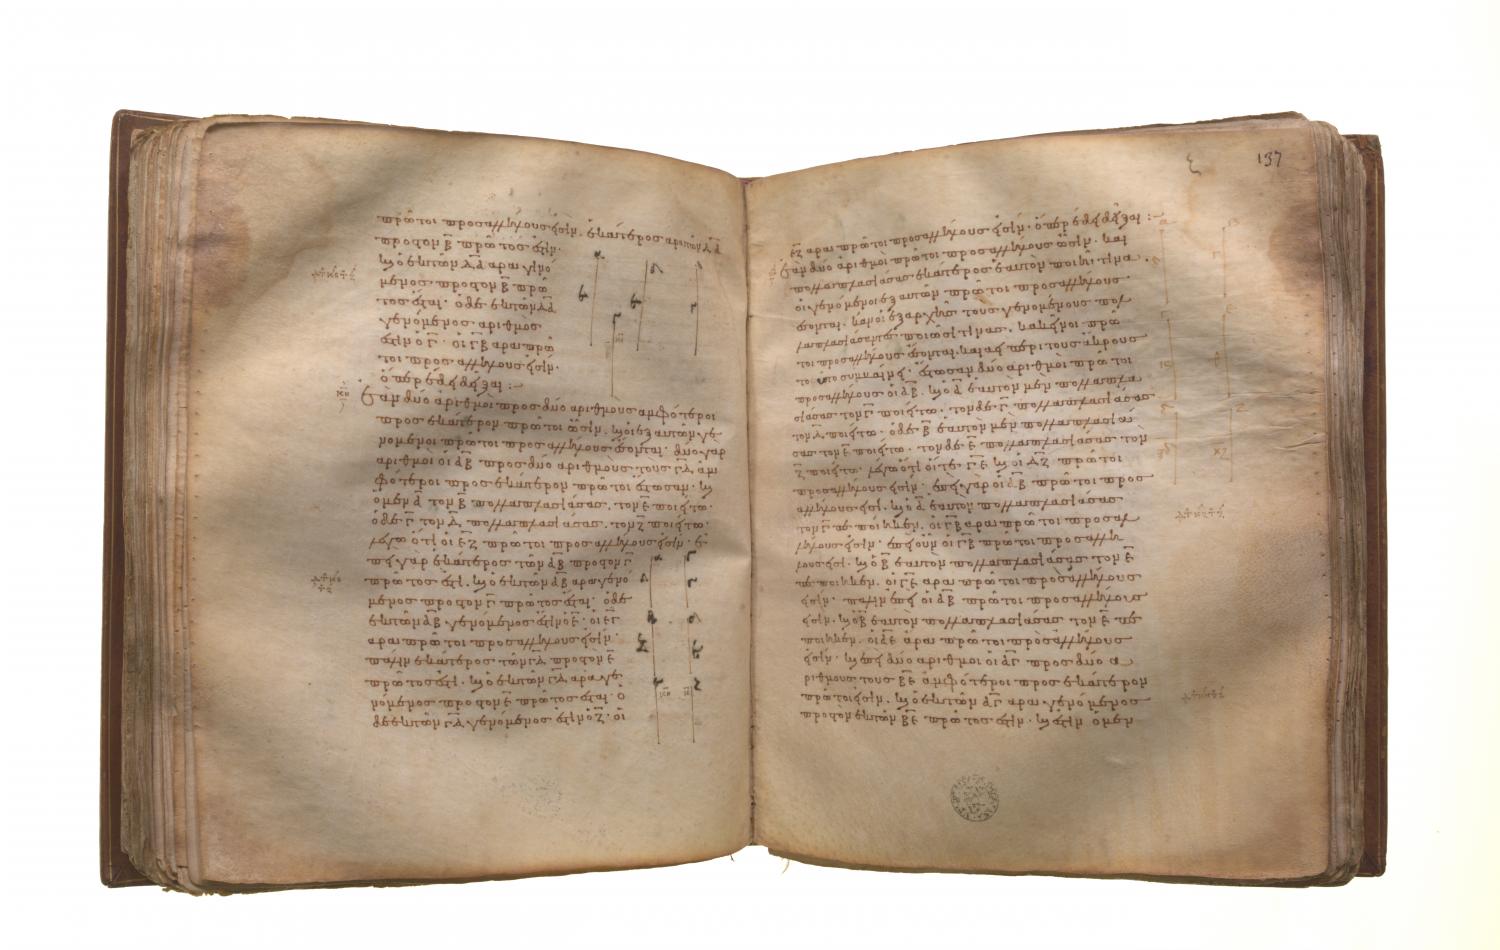 πρῶτοι προσαλλήλους εἰσίν. ἑκάτερος ἄρα τῶν Α Δ
προστὸν Β πρῶτός ἐστιν.
καὶ ὁ ἐκ τῶν Δ Α ἄρα γενό
μενος προστὸν Β πρῶ
τος ἔσται. ὁ δὲ ἐκ τῶν Δ Α
γενόμενος ἀριθμός
ἐστιν ὁ Γ. οἱ Γ Β ἄρα πρῶ
τοι προσαλλήλους εἰσίν.
ὅπερ ἔδει δεῖξαι :~
Ἐὰν δύο ἀριθμοὶ προς δύο ἀριθμοὺς ἀμφότεροι
προς ἑκάτερον πρῶτοι ὦσιν. καὶ οἱ ἐξ αὐτῶν γε
νόμενοι πρῶτοι προσαλλήλους ἔσονται. δύο γὰρ
ἀριθμοὶ οἱ Α Β προς δύο ἀριθμοὺς τοὺς Γ Δ ἀμ
φότεροι προς ἑκάτερον πρῶτοι ἔστωσαν. καὶ
ὁ μὲν Α τὸν Β πολλαπλασιάσας. τὸν Ε ποιείτω.
ὁ δὲ Γ τὸν Δ πολλαπλασιάσας. τὸν Ζ ποιείτω.
λέγω ὅτι οἱ Ε Ζ πρῶτοι προσαλλήλους εἰσίν. ἐ
πεὶ γὰρ ἑκάτερος τῶν Α Β προστὸν Γ
πρῶτός ἐστι. καὶ ὁ ἐκ τῶν Α Β ἄρα γενό
μενος προστὸν Γ πρῶτος ἔσται. ὁ δὲ
ἐκ τῶν Α Β γενόμενος ἐστὶν ὁ Ε. οἱ Ε Γ
ἄρα πρῶτοι προσαλλήλους εἰσίν.
πάλιν ἑκάτερος τῶν Γ Δ προστὸν Ε
πρῶτός ἐστι. καὶ ὁ ἐκ τῶν Γ Δ ἄρα γε
νόμενος προστὸν Ε πρῶτος ἔσται. ὁ
δὲ ἐκ τῶν Γ Δ γενόμενος ἐστὶν ὁ Ζ. οἱ
137
Ε Ζ ἄρα πρῶτοι προσαλλήλους εἰσίν. ὅπερ ἔδει δεῖξαι :~
Ἐὰν δύο ἀριθμοὶ πρῶτοι προσαλλήλους ὦσιν. καὶ
πολλαπλασιάσας ἑκάτερος ἑαυτὸν ποιῆι τινα.
οἱ γενόμενοι ἐξ αὐτῶν πρῶτοι προσαλλήλους
ἔσονται. κἂν οἱ ἐξαρχῆς τοὺς γενομένους πολ
λαπλασιάσαντες ποιῶσί τινας. κἀκεῖνοι πρῶ
τοι προσαλλήλους ἔσονται. καὶ ἀεὶ περὶ τοὺς ἄκρους
τοῦτο συμβαίνει. ἔστωσαν δύο ἀριθμοὶ πρῶτοι
προσαλλήλους οἱ Α Β. καὶ ὁ Α ἑαυτὸν μὲν πολλαπλα
σιάσας τὸν Γ ποιείτω. τὸν δὲ Γ πολλαπλασιάσας
τὸν Δ ποιείτω. ὁ δὲ Β ἑαυτὸν μὲν πολλαπλασιά
σας τὸν Ε ποιείτω. τὸν δὲ Ε πολλαπλασιάσας τὸν
Ζ ποιείτω. λέγω ὅτι οἵ τε Γ Ε καὶ οἱ Δ Ζ πρῶτοι
προσαλλήλους εἰσίν. ἐπεὶ γὰρ οἱ Α Β πρῶτοι προς
ἀλλήλους εἰσί. καὶ ὁ Α ἑαυτὸν πολλαπλασιάσας
τὸν Γ πεποίηκεν. οἱ Γ Β ἄρα πρῶτοι προσαλ
λήλους εἰσίν. ἐπεὶ οὖν οἱ Γ Β πρῶτοι προσαλλή
λους εἰσί. καὶ ὁ Β ἑαυτὸν πολλαπλασιάσας τὸν Ε
πεποίηκεν. οἱ Γ Ε ἄρα πρῶτοι προσαλλήλους
εἰσίν. πάλιν ἐπεὶ οἱ Α Β πρῶτοι προσαλλήλους
εἰσίν. καὶ ὁ Β ἑαυτὸν πολλαπλασιάσας τὸν Ε πε
ποίηκεν. οἱ Α Ε ἄρα πρῶτοι προσαλλήλους
εἰσίν. καὶ ἐπεὶ δύο ἀριθμοὶ οἱ Α Γ προς δύο ἀ
ριθμοὺς τοὺς Β Ε ἀμφότεροι προς ἑκάτερον
πρῶτοι εἰσίν. καὶ ὁ ἐκ τῶν Α Γ ἄρα γενόμενος
προστὸν ἐκ τῶν Β Ε πρῶτός ἐστιν. καὶ ἔστιν ὁ μὲν